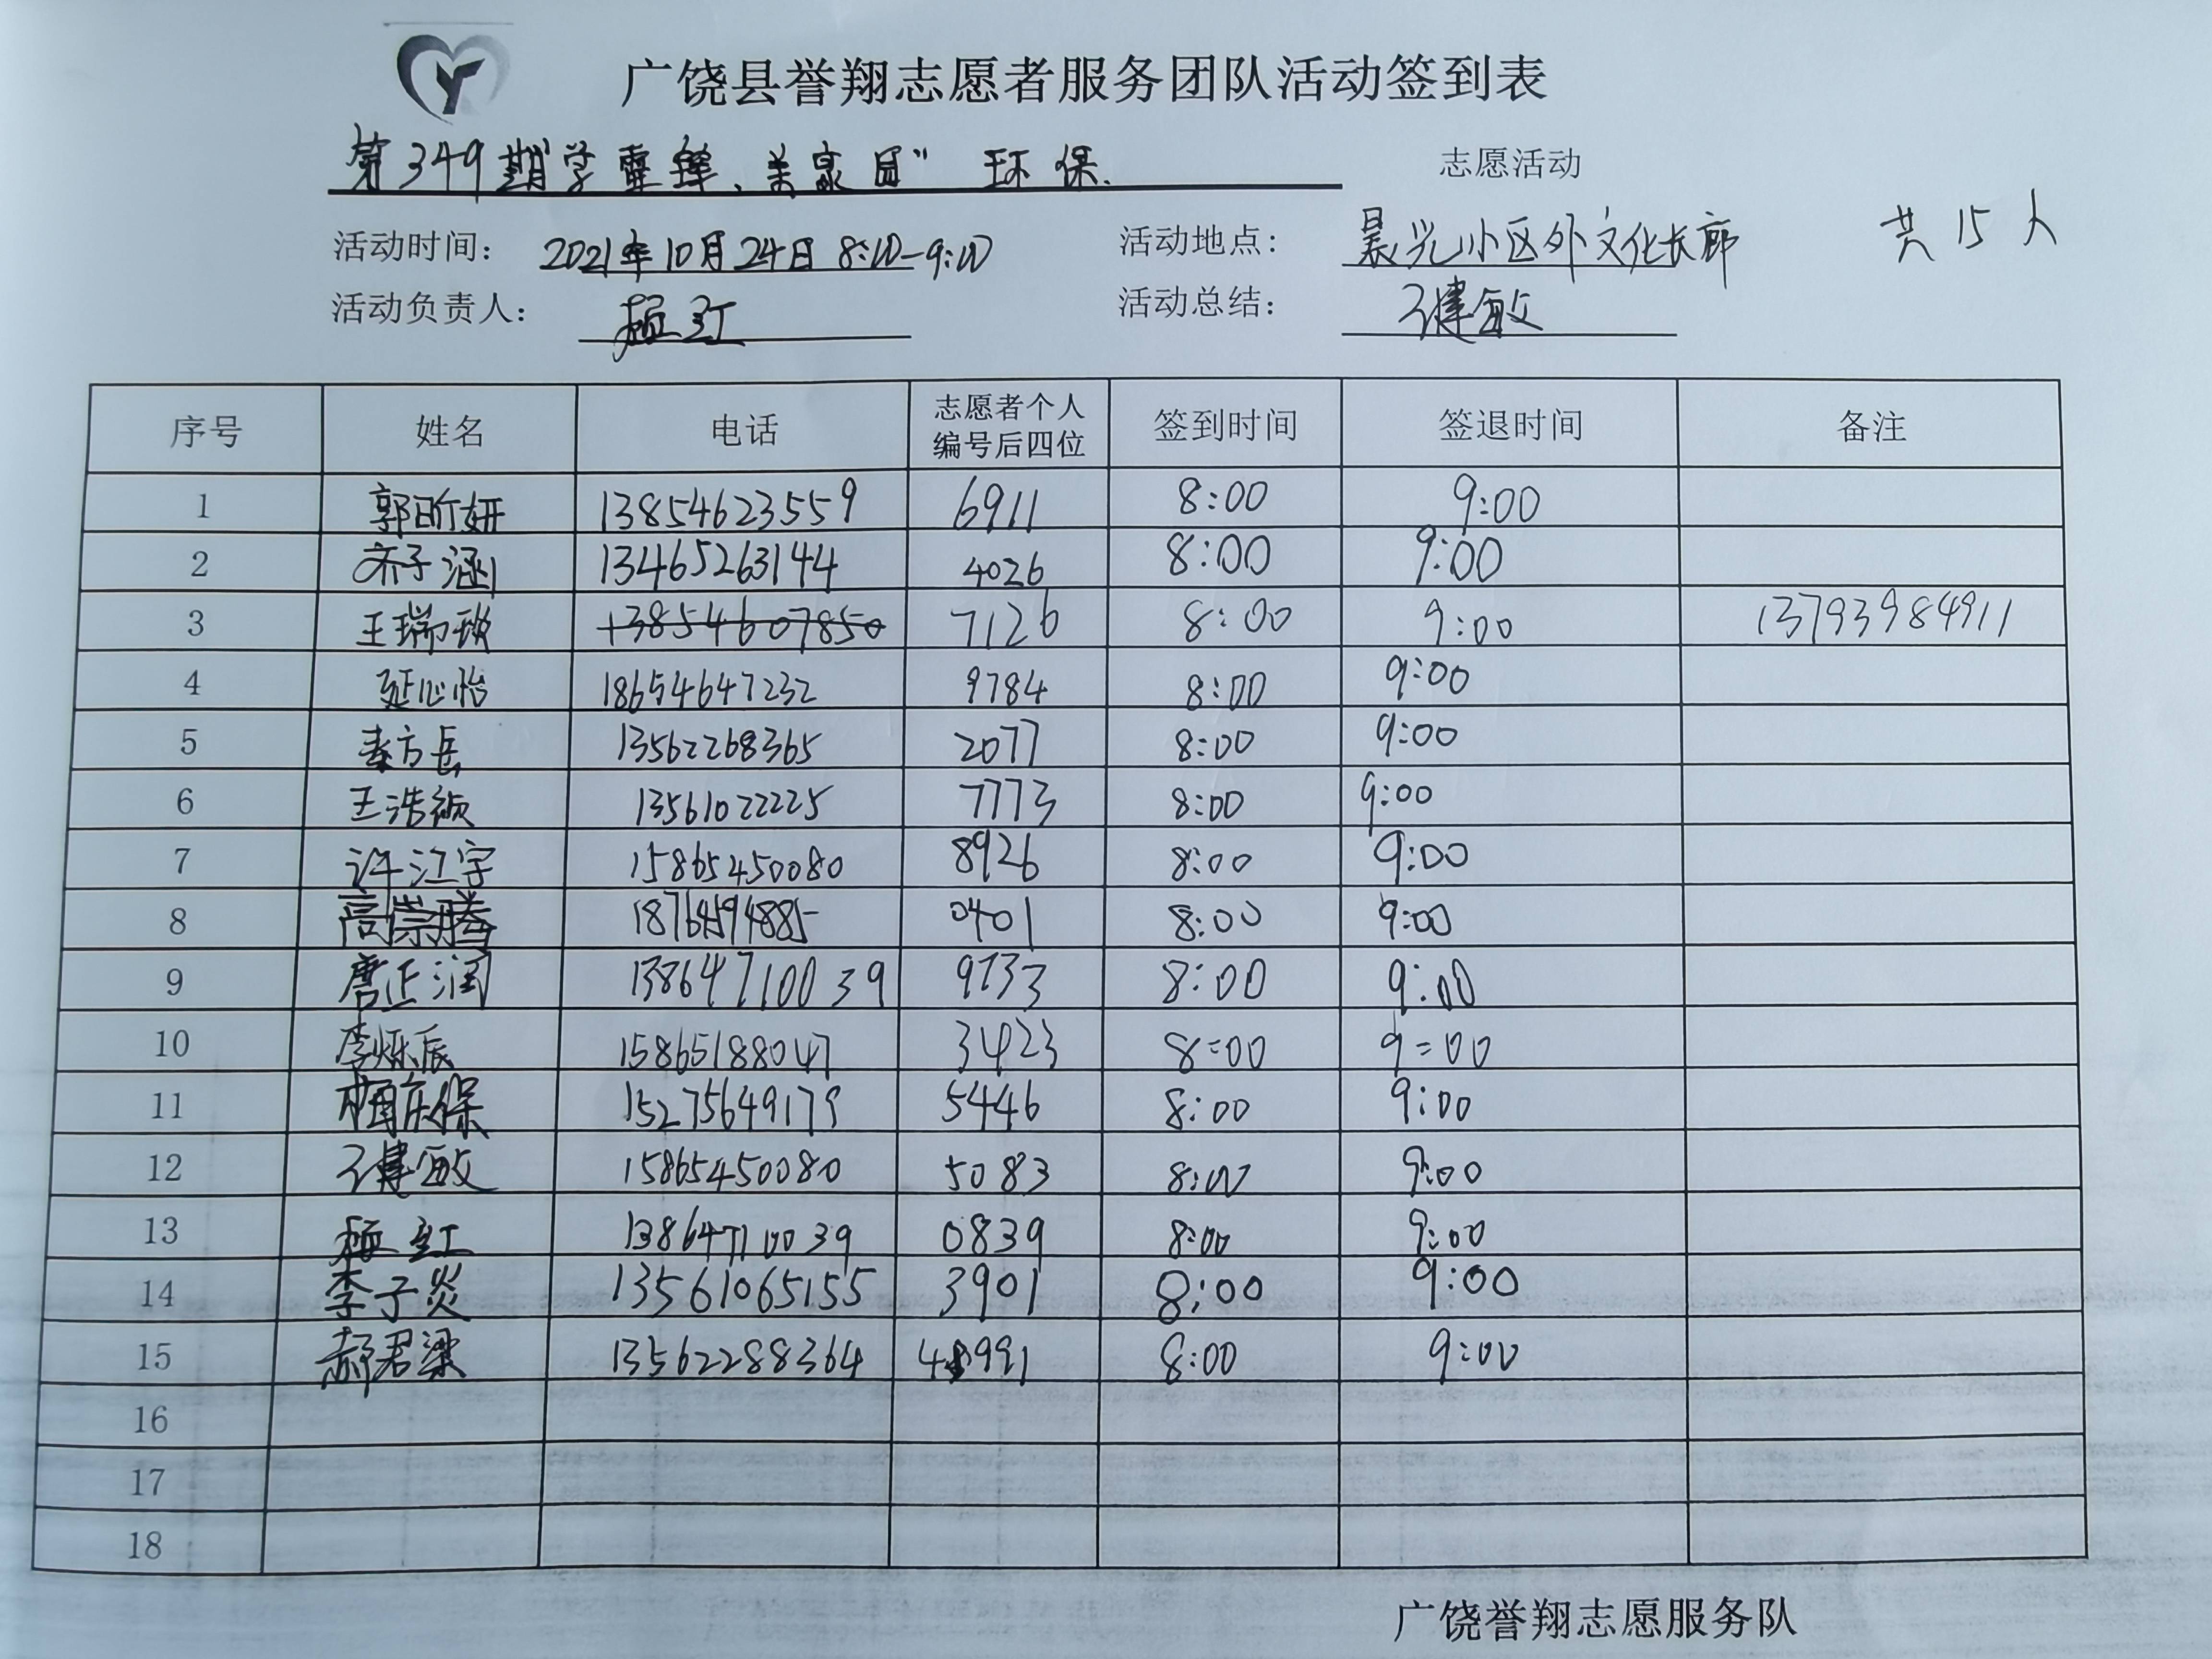 广饶县誉翔志愿者服务团队活动签到表
第349期"学雷锋、美家园" 环保. 志愿活动
活动时间: 2021年10月24日 8:00-9:00 活动地点: 晨光小区外文化长廊 共15人
活动负责人: 红 活动总结: 建敏
序号 姓名 电话 志愿者个人编号后四位 签到时间 签退时间 备注
1 郭昕妍 13854623559 6911 8:00 9:00
2 齐子涵 13465263144 4026 8:00 9:00
3 王瑞琰 13854607850 7126 8:00 9:00 13793984911
4 延心怡 18654647232 9784 8:00 9:00
5 秦方岳 13562268365 2077 8:00 9:00
6 王浩祯 13561022225 7773 8:00 9:00
7 许江宇 15865450080 8926 8:00 9:00
8 高崇腾 18764594885 0401 8:00 9:00
9 唐正润 13864710039 9733 8:00 9:00
10 李烁辰 15865188047 3423 8=00 9=00
11 庆保 15275649179 5446 8:00 9:00
12 建敏 15865450080 5083 8:00 9:00
13 红 13864710039 0839 8:00 9:00
14 李子炎 13561065155 3901 8:00 9:00
15 郝君梁 13562288364 4991 8:00 9:00
16
17
18
广饶誉翔志愿服务队